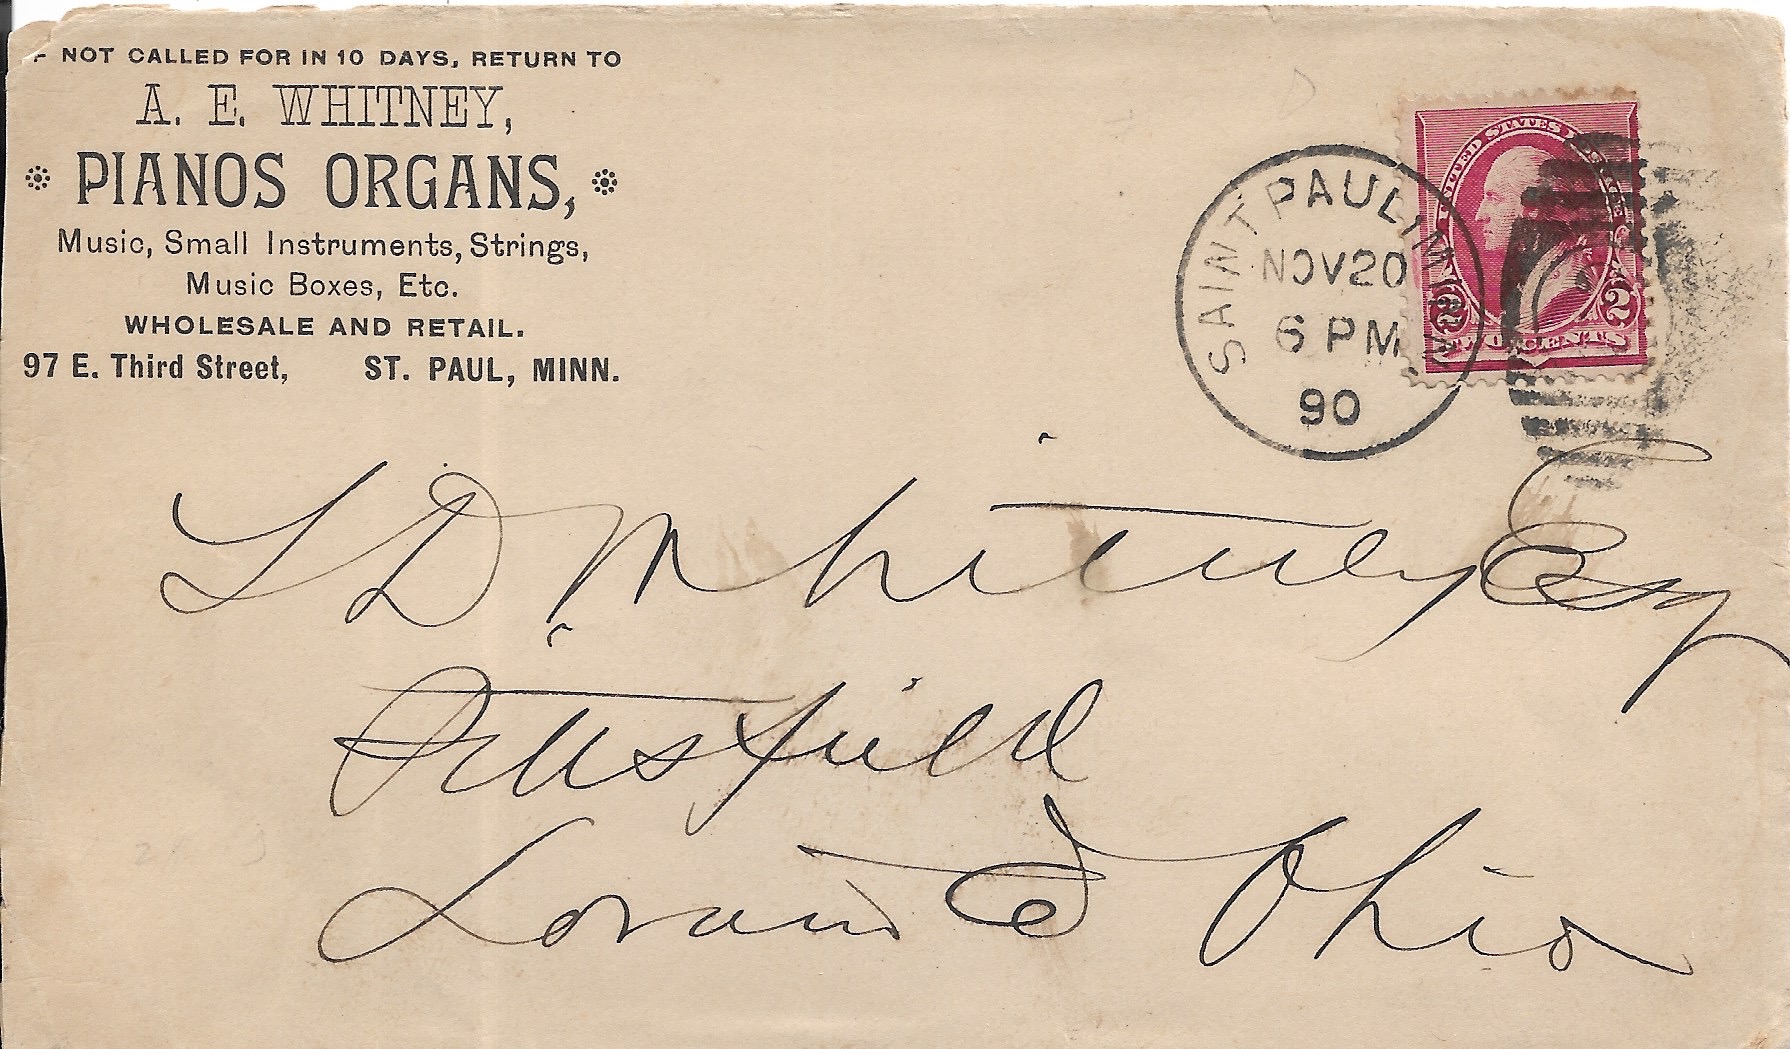 NOT CALLED FOR IN 10 DAYS, RETURN TO
A. E. WHITNEY,
PIANOS ORGANS,
Music, Small Instruments, Strings,
Music Boxes, Etc.
WHOLESALE AND RETAIL.
97 E. Third Street, ST. PAUL, MINN.
SAINT PAUL, MINN
NOV 20
6 PM
90
UNITED STATES POSTAGE
2 2
TWO CENTS
L D Whitney Esq
Pittsfield
Lorain Co Ohio